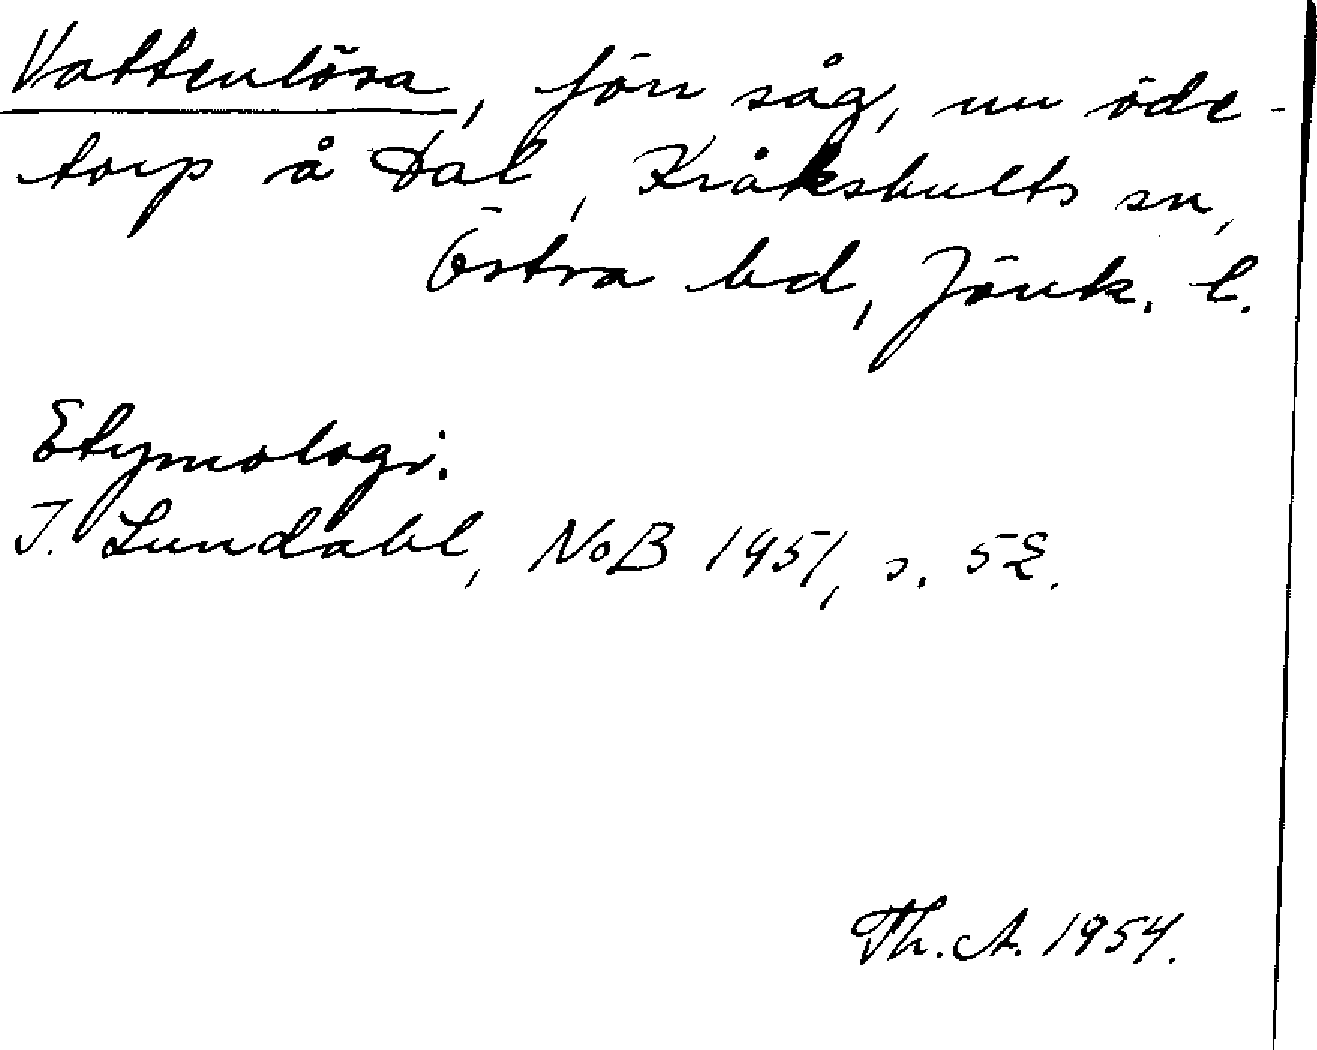 Vattenlösa, förr såg, nu öde-
torp å Dal, Kråkshults sn,
Östra hd, Jönk. l.
Etymologi.
I. Lundahl, NoB 1951, s. 58.
Th. A. 1954.